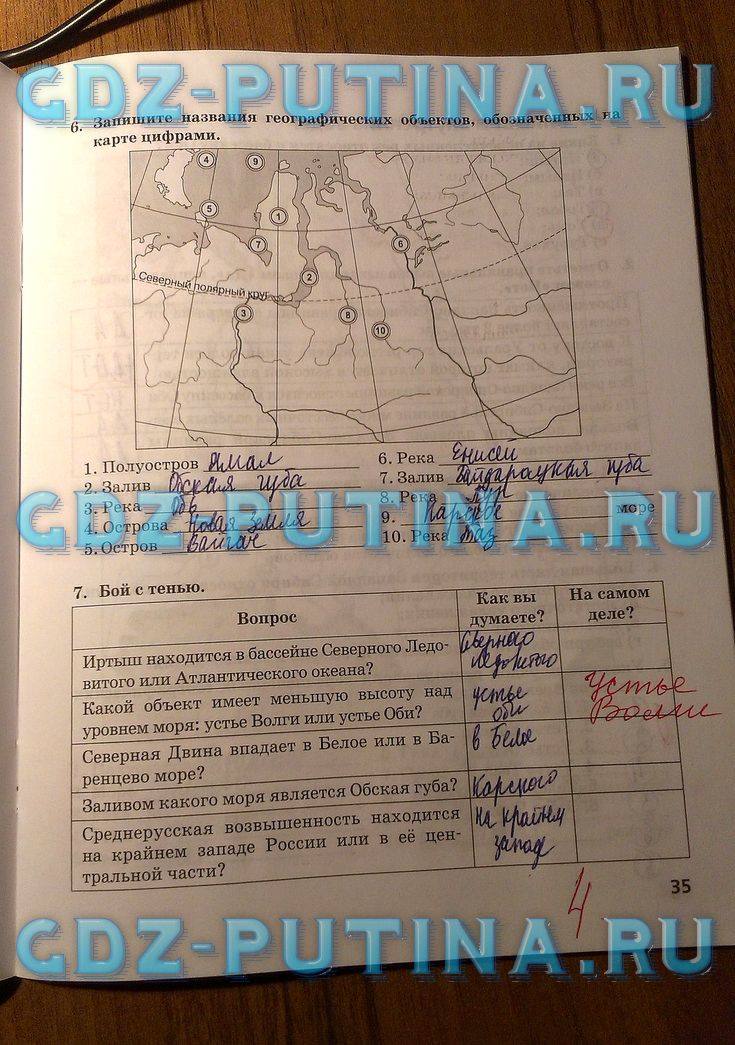 GDZ-PUTINA.RU
6. Запишите названия географических объектов, обозначенных на
карте цифрами.
4 9
5 1
7 6
2
Северный полярный круг
3 8
10
1. Полуостров Ямал
2. Залив Обская губа
3. Река Обь
4. Острова Новая Земля
5. Остров Вайгач
6. Река Енисей
7. Залив Байдарацкая губа
8. Река
9. Карское море
10. Река Таз
GDZ-PUTINA.RU
7. Бой с тенью.
Вопрос
Как вы
думаете?
На самом
деле?
Иртыш находится в бассейне Северного Ледо-
витого или Атлантического океана?
Северного
Ледовитого
Какой объект имеет меньшую высоту над
уровнем моря: устье Волги или устье Оби?
устье
Оби
Устье
Волги
Северная Двина впадает в Белое или в Ба-
ренцево море?
в Белое
Заливом какого моря является Обская губа?
Карского
Среднерусская возвышенность находится
на крайнем западе России или в её цен-
тральной части?
на крайнем
западе
4
35
GDZ-PUTINA.RU